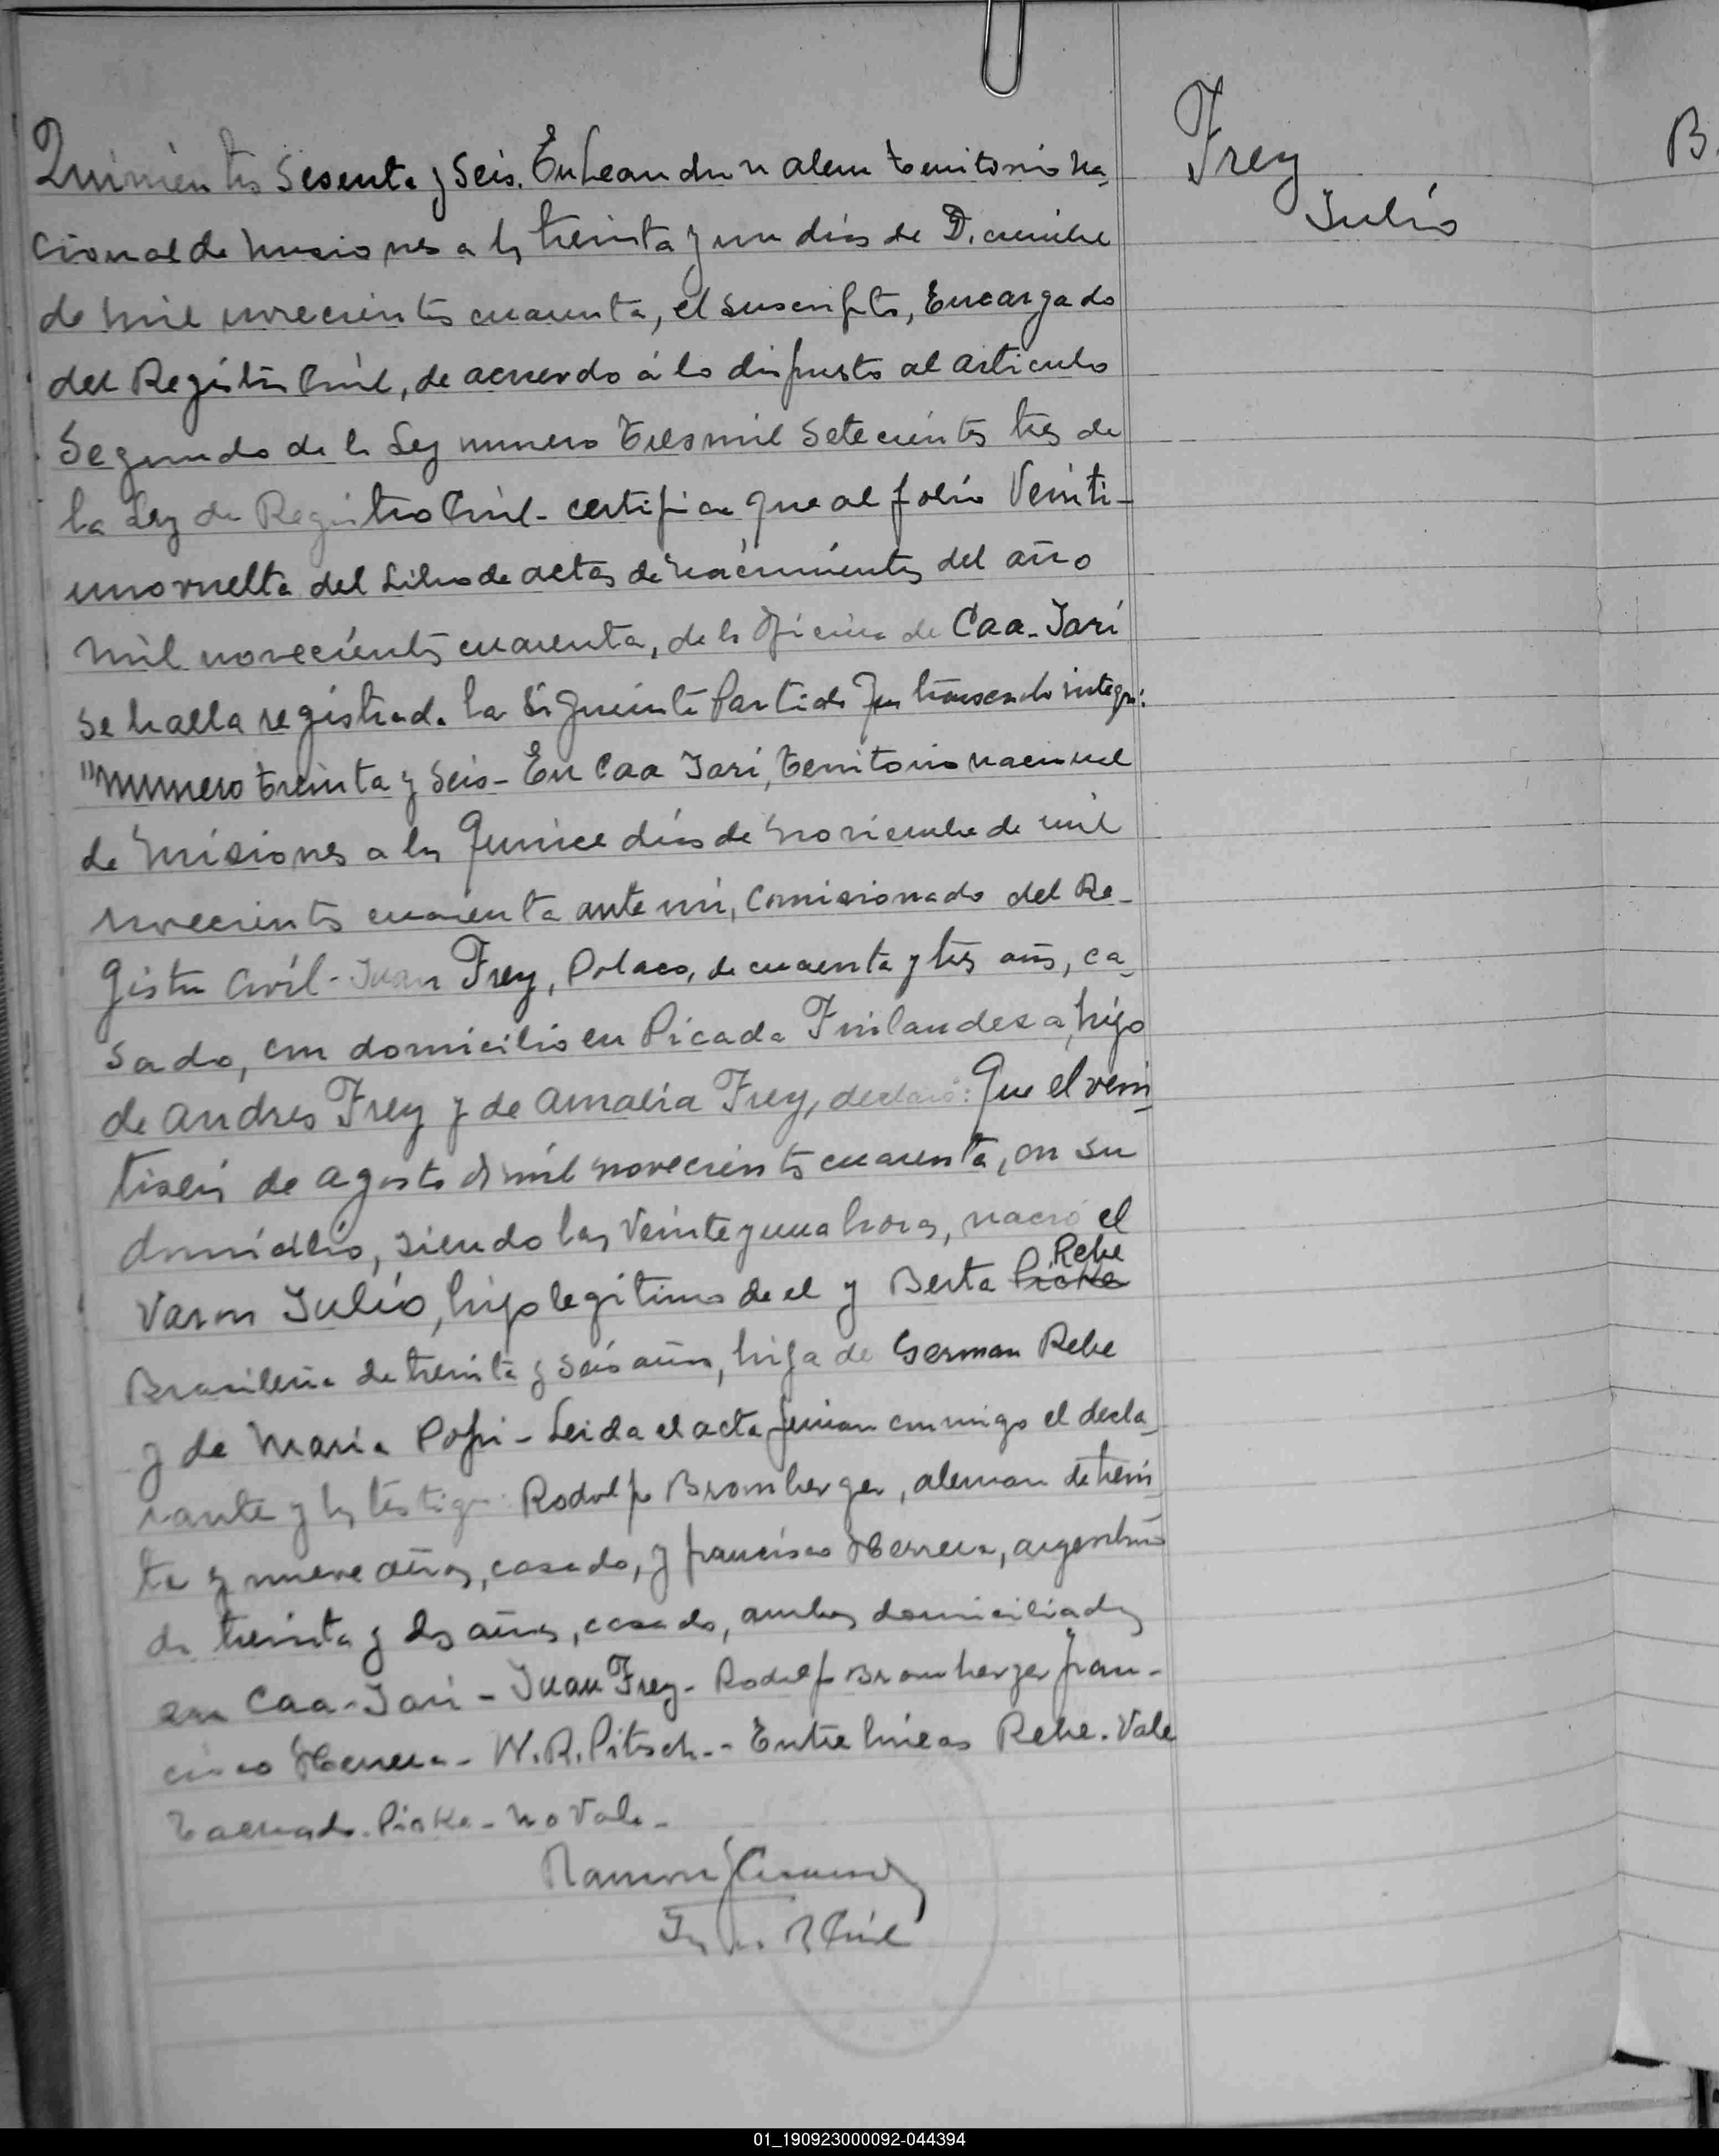 Quinientos Sesenta y Seis. En Leandro n alem territorio na-
cional de misiones a los treinta y un dias de Diciembre
de mil novecientos cuarenta, el suscripto, Encargado
del Registro Civil, de acuerdo á lo dispuesto al articulo
Segundo de la Ley numero tres mil setecientos tres de
la Ley de Registro Civil - certifica que al folio Veinti-
uno vuelta del Libro de actas de nacimientos del año
mil novecientos cuarenta, de la Oficina de Caa-Yari
se halla registrada la siguiente Partida que transcribo integra:
"numero treinta y seis - En Caa Yari, territorio nacional
de misiones a los quince dias de noviembre de mil
novecientos cuarenta ante mi, Comisionado del Re-
gistro Civil - Juan Frey, Polaco, de cuarenta y tres años, ca-
sado, con domicilio en Picada Finlandesa, hijo
de Andres Frey y de Amalia Frey, declaró: Que el vein-
tiseis de agosto de mil novecientos cuarenta, en su
domicilio, siendo las veinte y una horas, nació el
Varon Julio, hijo legitimo de el y Berta Pioke Rebe
Brasileña de treinta y seis años, hija de German Rebe
y de Maria Popi - Leida el acta firman conmigo el decla-
rante y los testigos: Rodolfo Bromberger, aleman de trein-
ta y nueve años, casado, y francisco Herrera, argentino
de treinta y dos años, casado, ambos domiciliados
en Caa-Yari - Juan Frey - Rodolfo Bromberger fran-
cisco Herrera - W. R. Pitsch. - Entre lineas Rebe. Vale
Tachado. Pioke - no Vale -
Ramon
Civil
Frey
Julio
B.
01_190923000092-044394